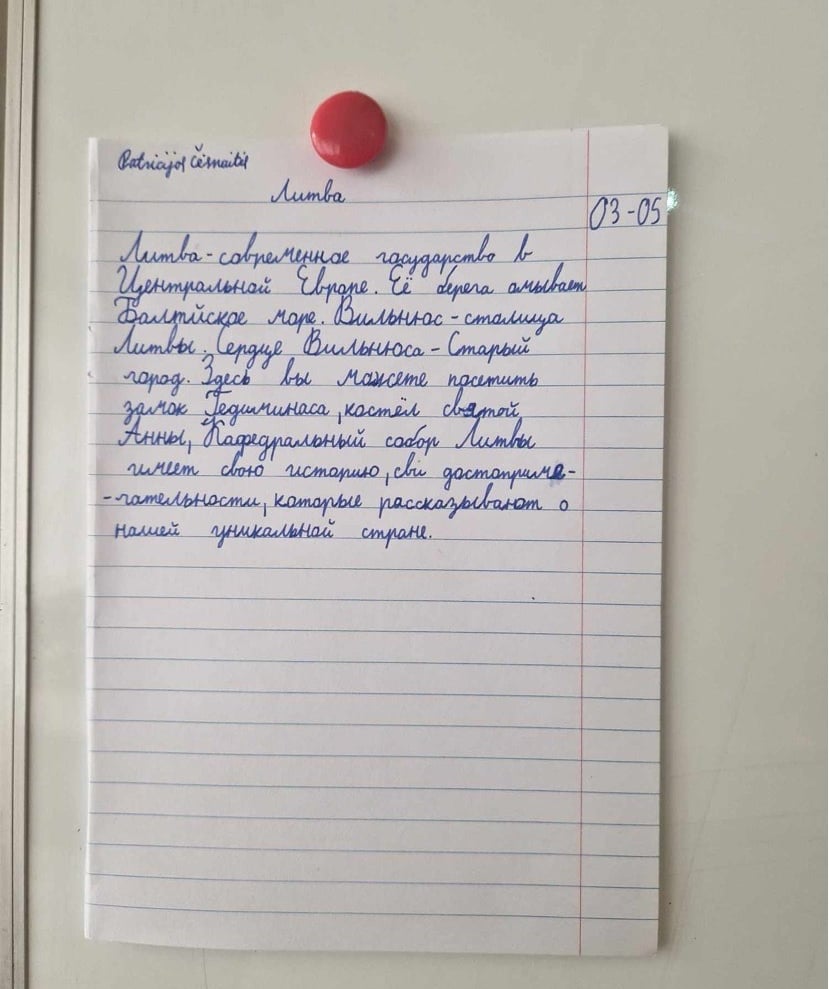 Patricijos Česnaitis
Литва
03-05
Литва-современное государство в
Центральной Европе. Её берега омывает
Балтйское море. Вильнюс-столица
Литвы. Сердце Вильнюса-Старый
город. Здесь вы можете посетить
замок Гедиминаса, костёл святой
Анны, Кафедральный собор Литвы
имеет свою историю, свои достоприме-
-чательности, которые рассказывают о
нашей уникальной стране.